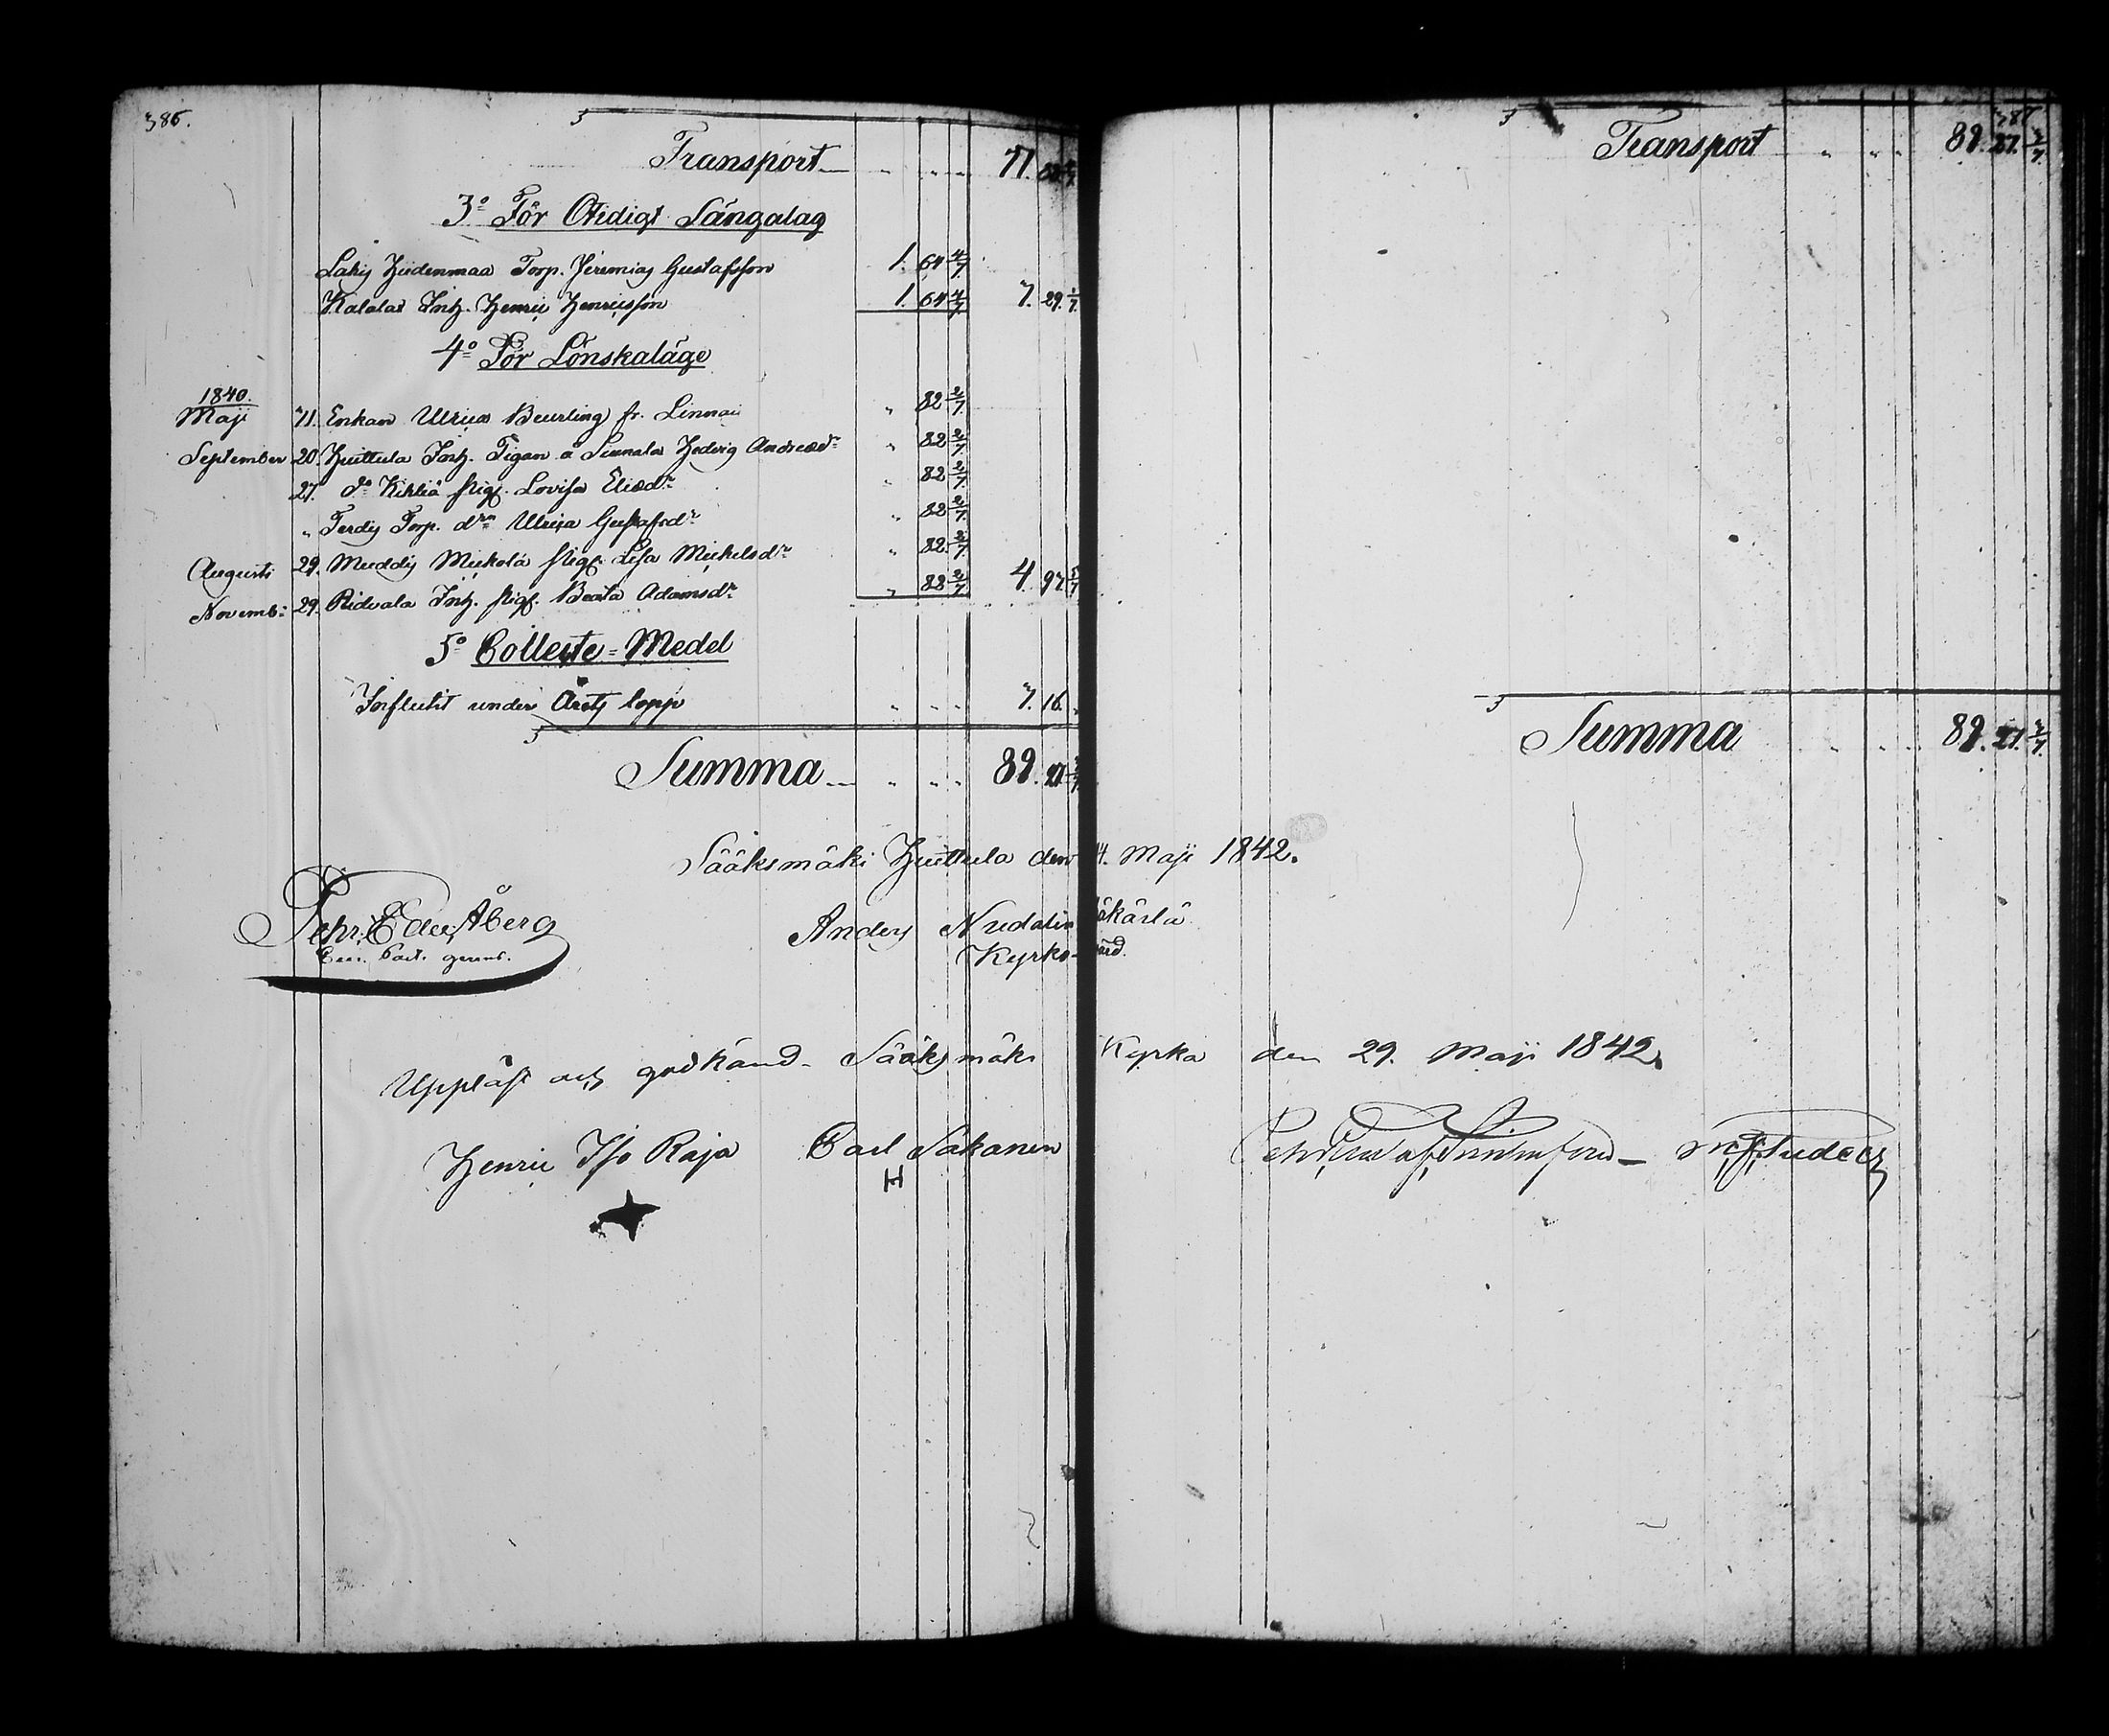 386.
Transport 71.
3:o För Otidigt Sängalag
Lahis Hiidenmaa Torp. Jeremias Gustafsson 1. 64 4/7
Kalalas Inh. Henric Henricsson 1. 64 4/7 7. 29. 1/7.
4:o För Lönskaläge
1840.
Maji 71. Enkan Ulrica Beurling fr. Linnais „ 82 2/7
September 20. Huittula Inh. Pigan å Hedvig Andreæd:r „ 82 2/7
27. d:o Kihliä Pig. Lovisa Eliæd:r „ 82 2/7
„ Perdis Torp. d:rn Ulrica Gustafsd:r „ 82 2/7
Augusti 29. Muddis Mickola Pig. Lisa Mickelsd:r „ 82 2/7
Novemb: 29. Ridvala Inh. Pig. Beata Adamsd:r „ 88 2/7 4. 97 5/7
5:o Collecte-Medel
Influtit under Årets lopp 7. 16.
Summa 89. 27
Sääksmäki Huittula den 4. Maji 1842.
Pehr Ede Åberg
Anders Kyrko-
Upläst och godkänd. Sääksmäki Kyrka den 29. Maji 1842.
Henric Iso Raja Carl Sakanen
H
387
Transport 89. 27. 2/7.
Summa 89. 27. 2/7.